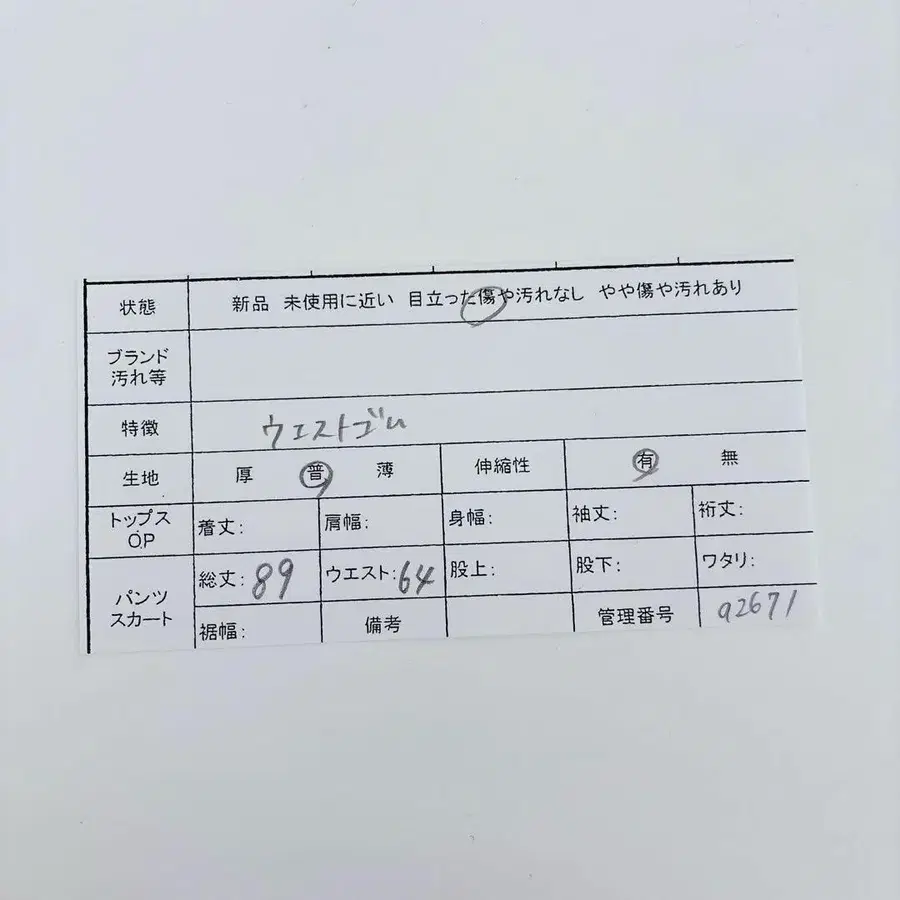 状態 新品 未使用に近い 目立った傷や汚れなし やや傷や汚れあり
ブランド
汚れ等
特徴 ウエストゴム
生地 厚 普 薄 伸縮性 有 無
トップス
OP 着丈: 肩幅: 身幅: 袖丈: 裄丈:
パンツ
スカート 総丈: 89 ウエスト: 64 股上: 股下: ワタリ:
裾幅: 備考 管理番号 a2671